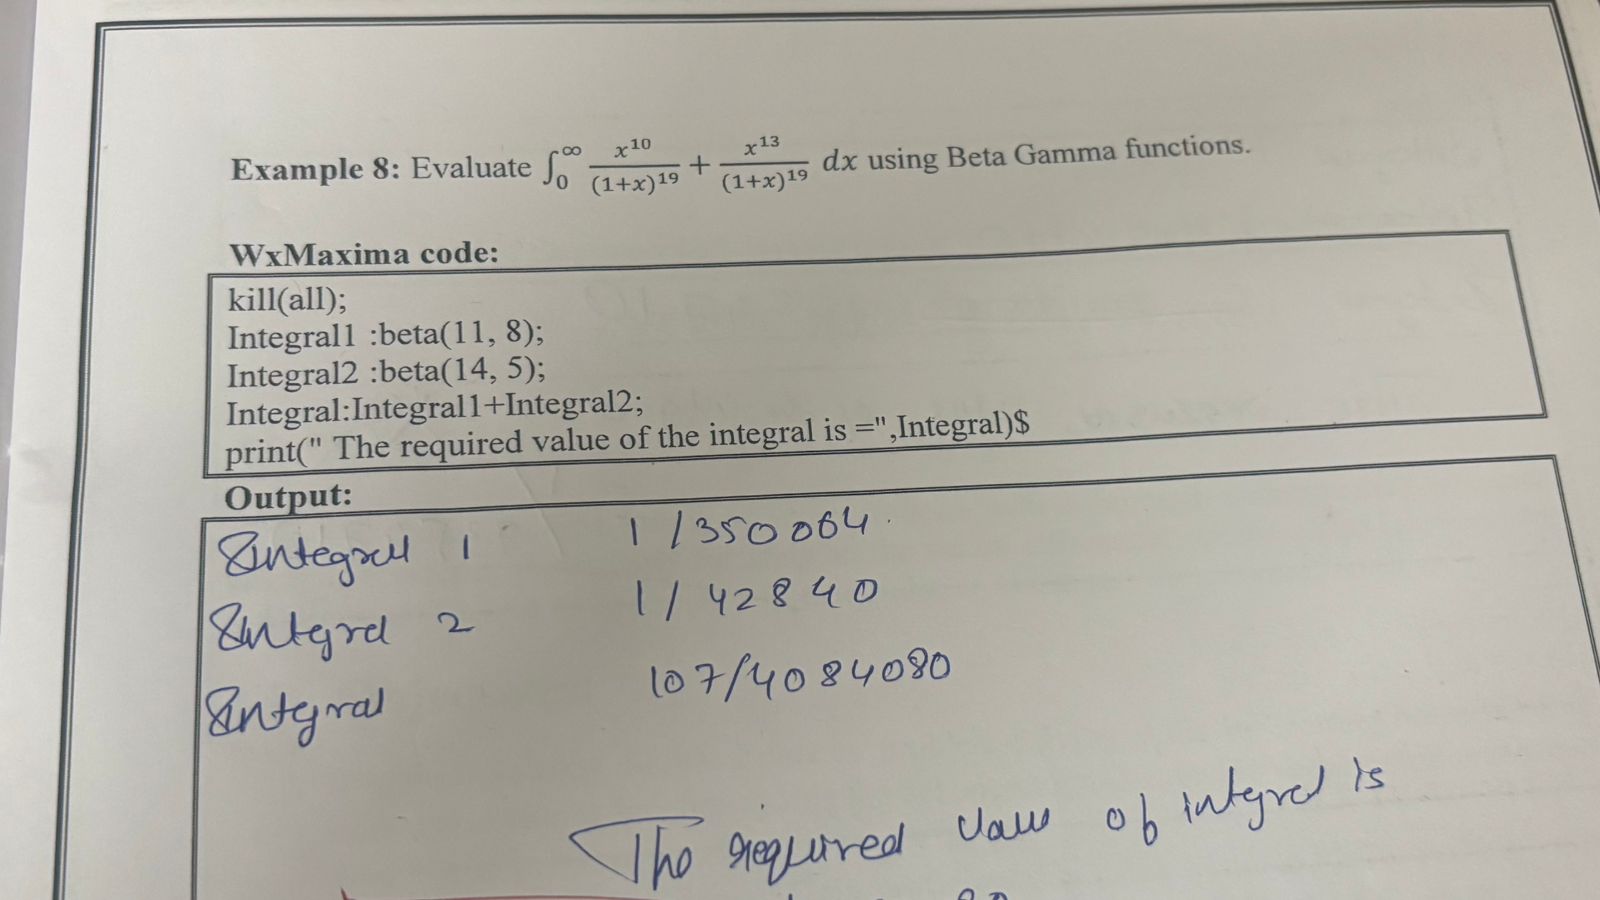 Example 8: Evaluate ∫₀^∞ x¹⁰/(1+x)¹⁹ + x¹³/(1+x)¹⁹ dx using Beta Gamma functions.
WxMaxima code:
kill(all);
Integral1 :beta(11, 8);
Integral2 :beta(14, 5);
Integral:Integral1+Integral2;
print(" The required value of the integral is =",Integral)$
Output:
Integral 1 1/350064
Integral 2 1/42840
Integral 107/4084080
The required value of integral is